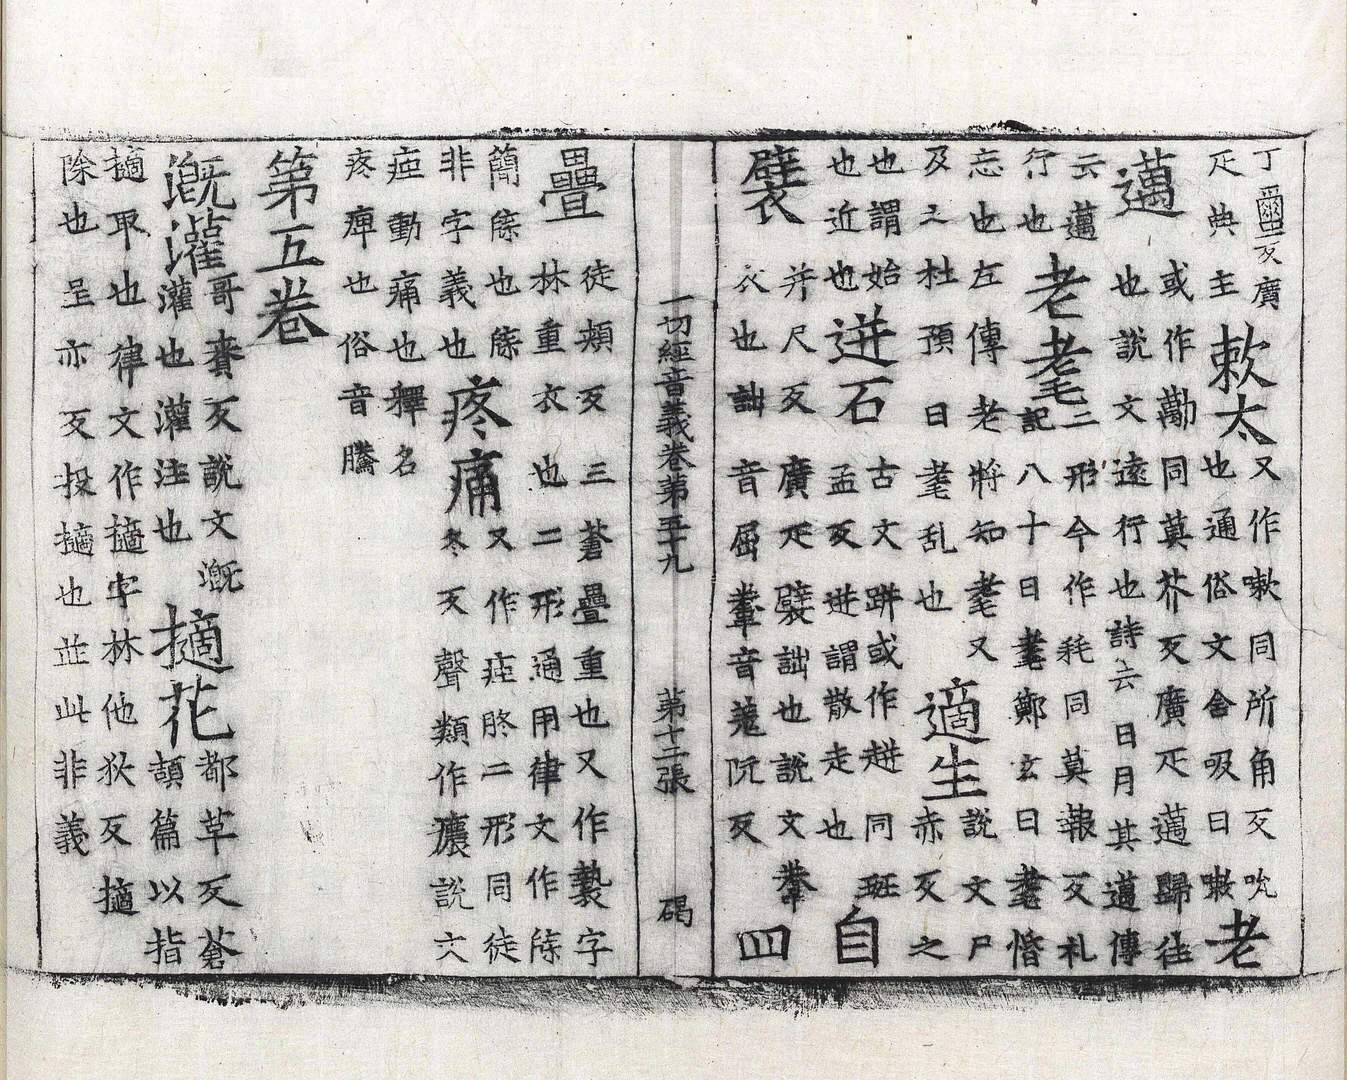 丁壐反廣
疋典主
欶太
又作嗽同所角反吮
也通俗文含吸曰嗽
老
邁
或作勱同莫芥反廣疋邁歸往
也說文遠行也詩云日月其邁傳
云邁
行也
老耄
二形今作耗同莫報反礼
記八十曰耄鄭玄曰耄惛
忘也左傳老將知耄又
及之杜預曰耄乱也
適生
說文尸
赤反之
也謂始
也近也
迸石
古文跰或作趀同班
孟反迸謂散走也
自
襞
并尺反廣疋襞詘也說文韏
衣也詘音屈韏音菀阮反
四
一切經音義卷第五十九
第十二張
碣
疊
徒頰反三蒼疊重也又作褺字
林重衣也二形通用律文作牒
簡牒也牒
非字義也
疼痛
又作痋胮二形同徒
冬反聲類作癑說文
痋動痛也釋名
疼痺也俗音騰
第五卷
溉灌
哥賚反說文溉
灌也灌注也
擿花
都革反蒼
頡篇以指
擿取也律文作擿字林他狄反擿
除也呈亦反投擿也並此非義